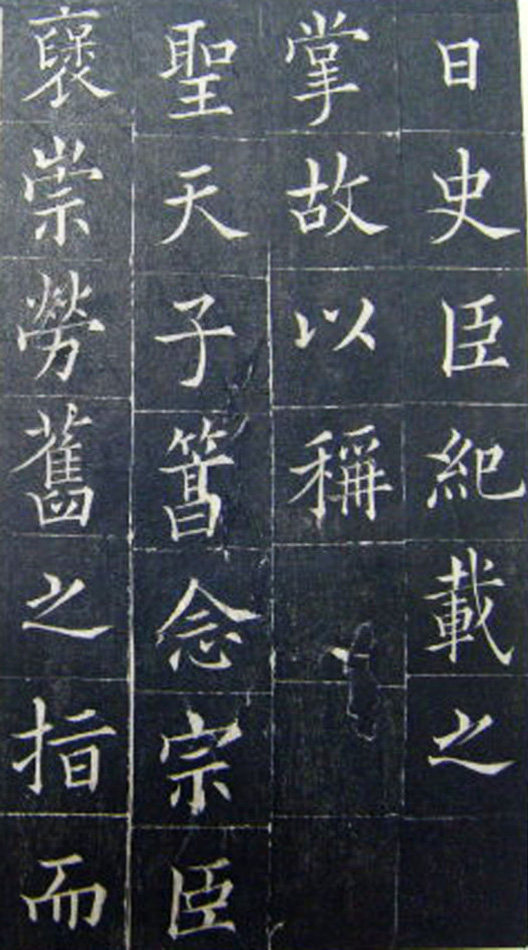 日史臣紀載之
掌故以稱
聖天子念宗臣
褒崇勞舊之指而